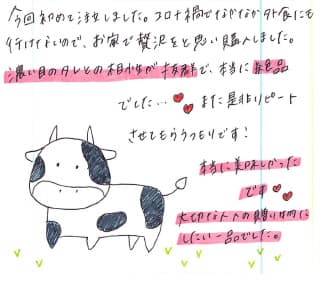 今回初めて注文しました。コロナ禍でなかなか外食にも
行けないので、お家で贅沢をと思い購入しました。
濃い目のタレとの相性が抜群で、本当に絶品
でした…♥♥また是非リピート
させてもらうつもりです!
本当に美味しかった
です♥♥
大切な人への贈り物に
したい一品でした。